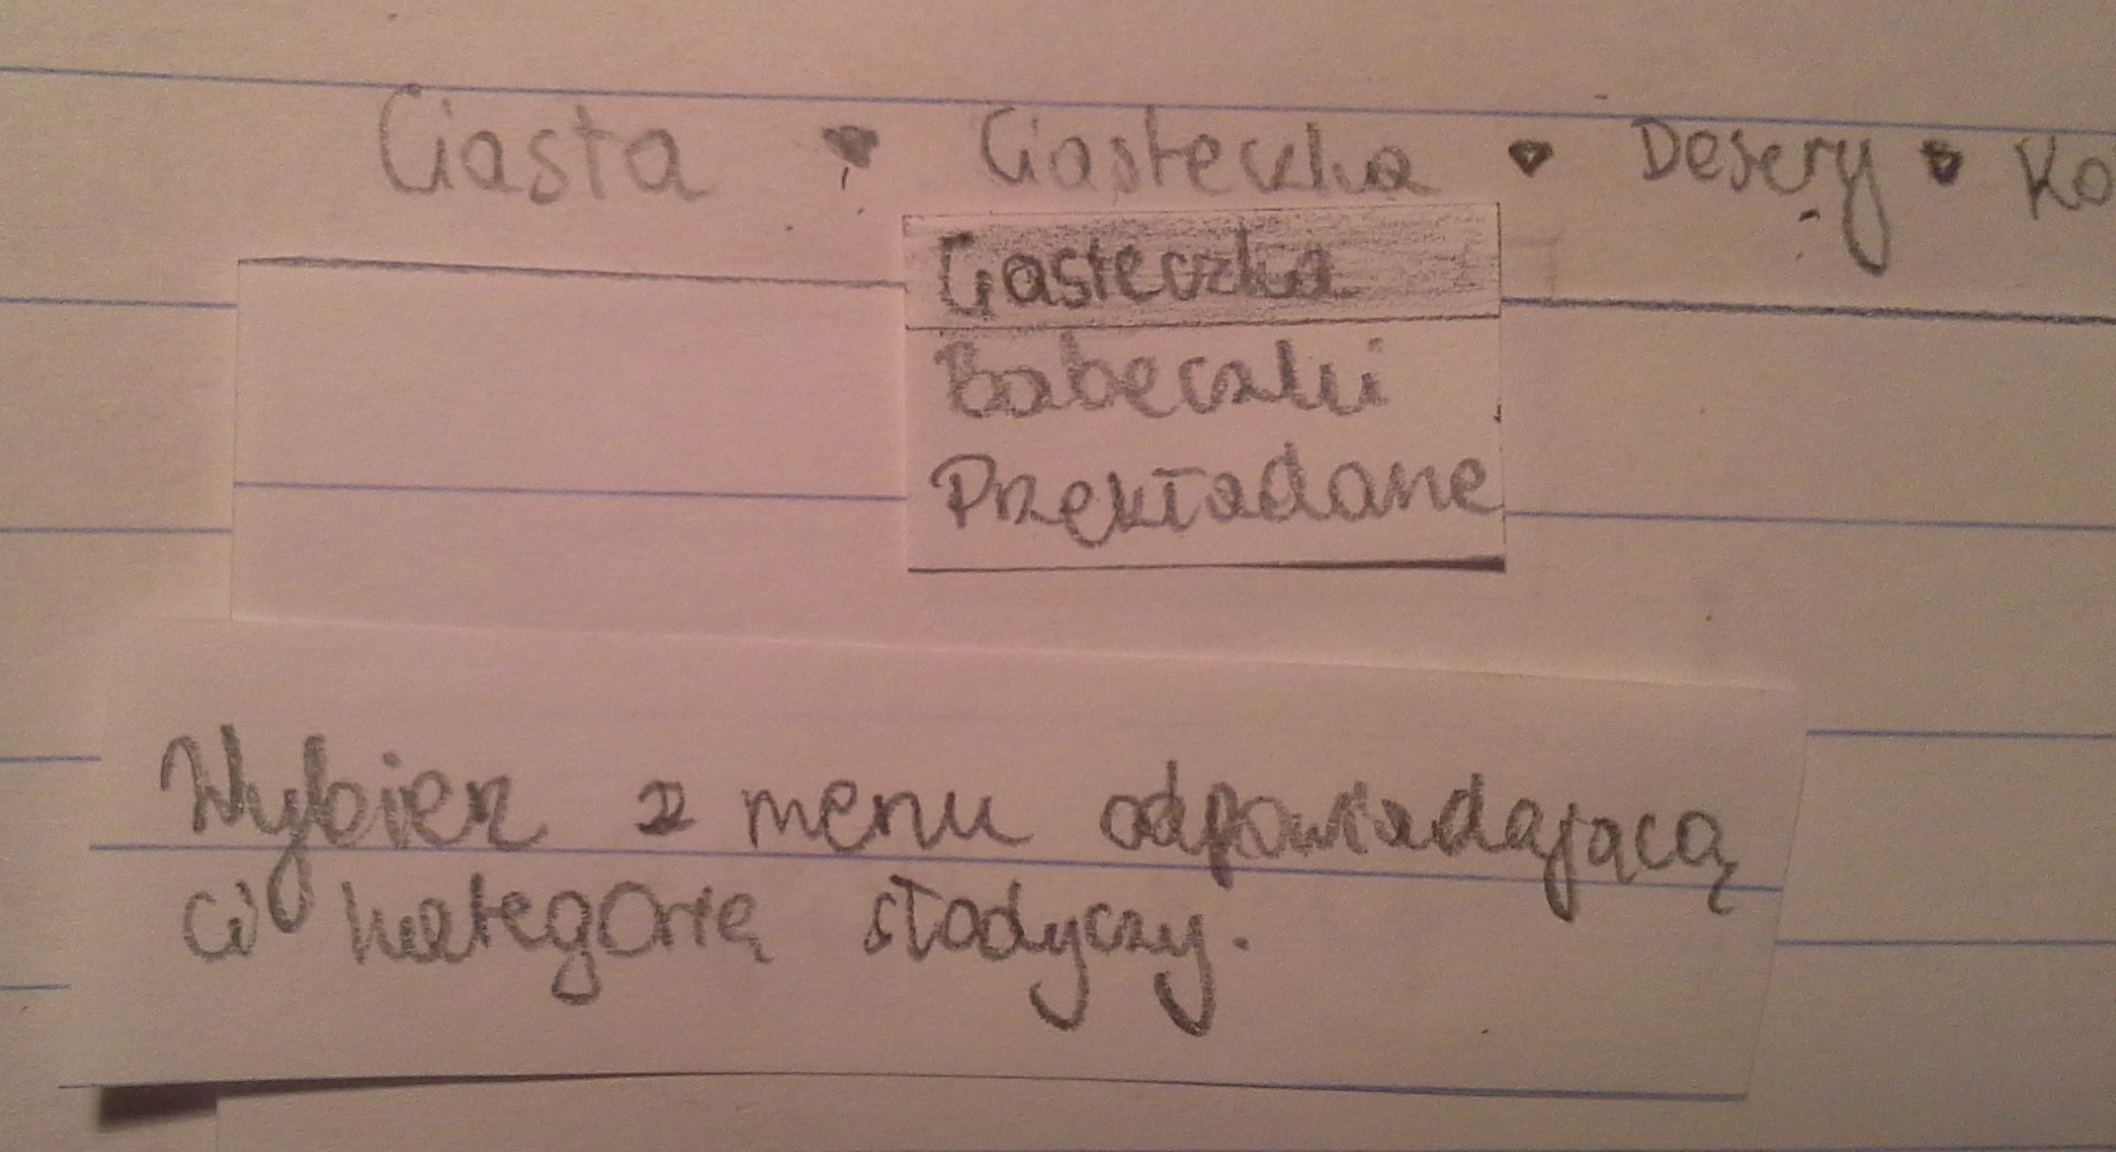 Ciasta Ciasteczka Desery Ko
Ciasteczka
Babeczki
Przekładane
Wybierz z menu odpowiadającą
ci kategorię słodyczy.